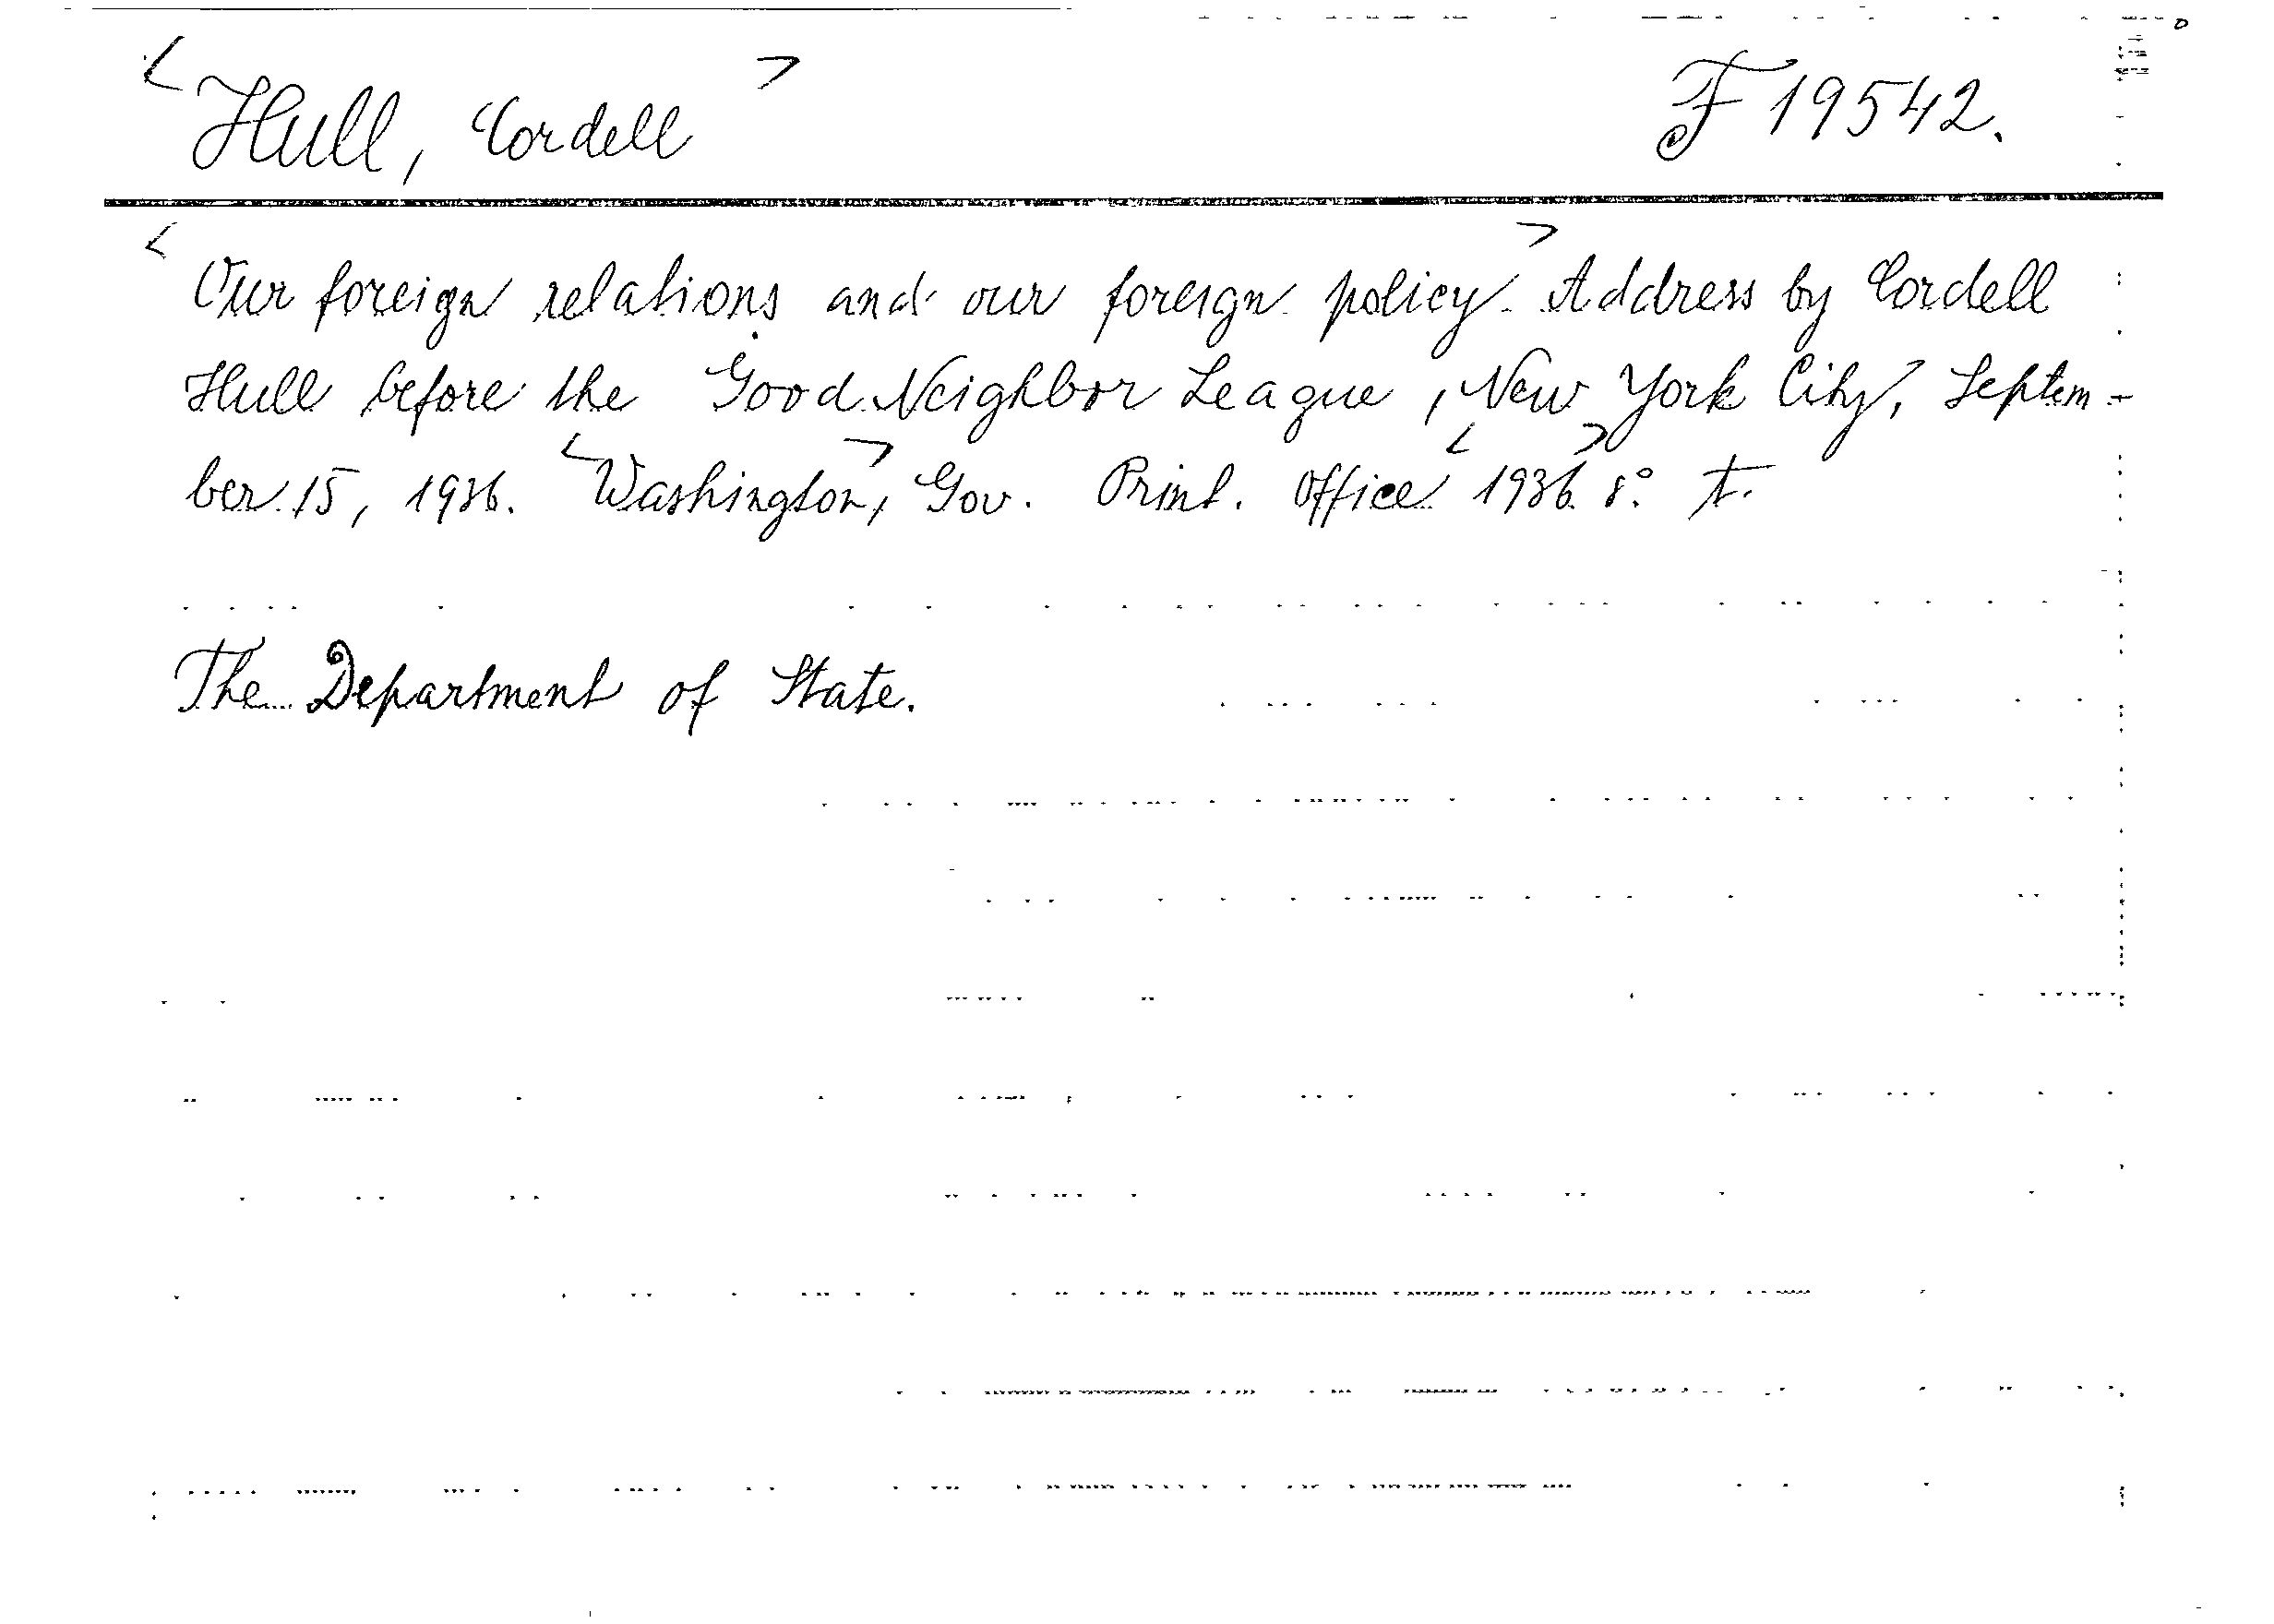 <Hull, Cordell> F 19542.
<Our foreign relations and our foreign policy.> Address by Cordell
Hull before the Good Neighbor League, New York City, Septem-
ber 15, 1936. <Washington>, Gov. Print. Office <1936>. 8° t.
The Department of State.